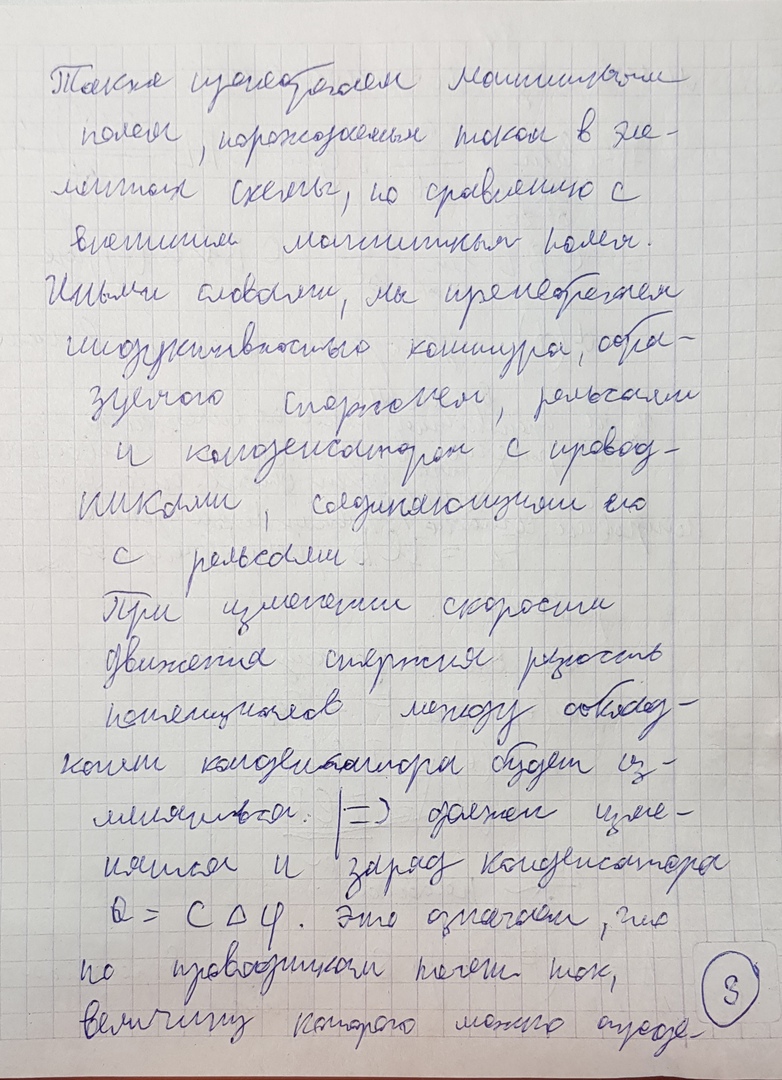 Также пренебрегаем магнитным
полем, порождаемым током в эле-
ментах схемы, по сравнению с
внешним магнитным полем.
Иными словами, мы пренебрегаем
индуктивностью контура, обра-
зуемого стержнем, рельсами
и конденсатором с провод-
никами, соединяющими его
с рельсами.
При изменении скорости
движения стержня разность
потенциалов между обклад-
ками конденсатора будет из-
меняться. |=> должен изме-
няться и заряд конденсатора
Q = C Δ φ. Это означает, что
по проводникам потечёт ток,
величину которого можно опреде-
3